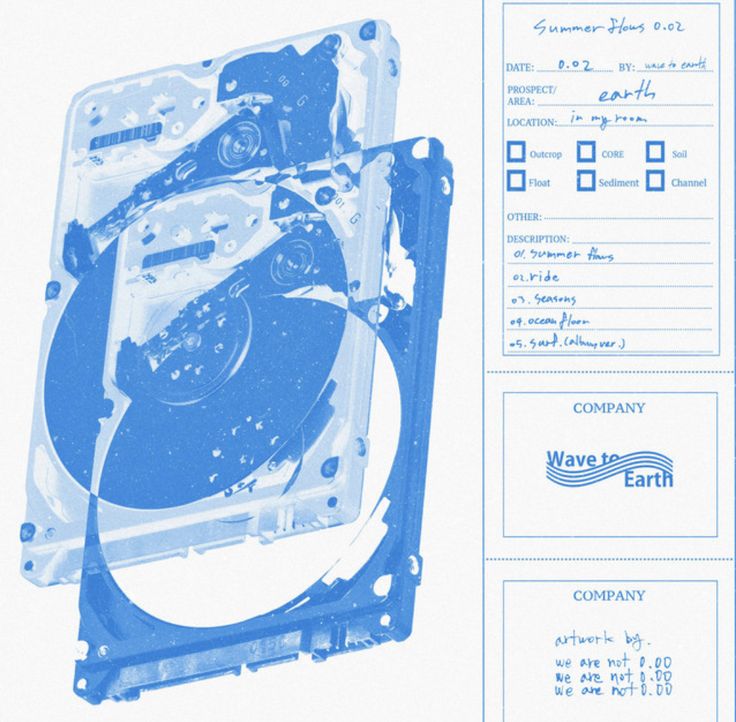 00 G
001 G
Summer flows 0.02
DATE: 0.02 BY: wave to earth
PROSPECT/
AREA: earth
LOCATION: in my room
Outcrop CORE Soil
Float Sediment Channel
OTHER:
DESCRIPTION:
01. Summer flows
02. ride
03. seasons
04. ocean floor
05. surf. (album ver.)
COMPANY
Wave to
Earth
COMPANY
artwork by.
we are not 0.00
we are not 0.00
we are not 0.00